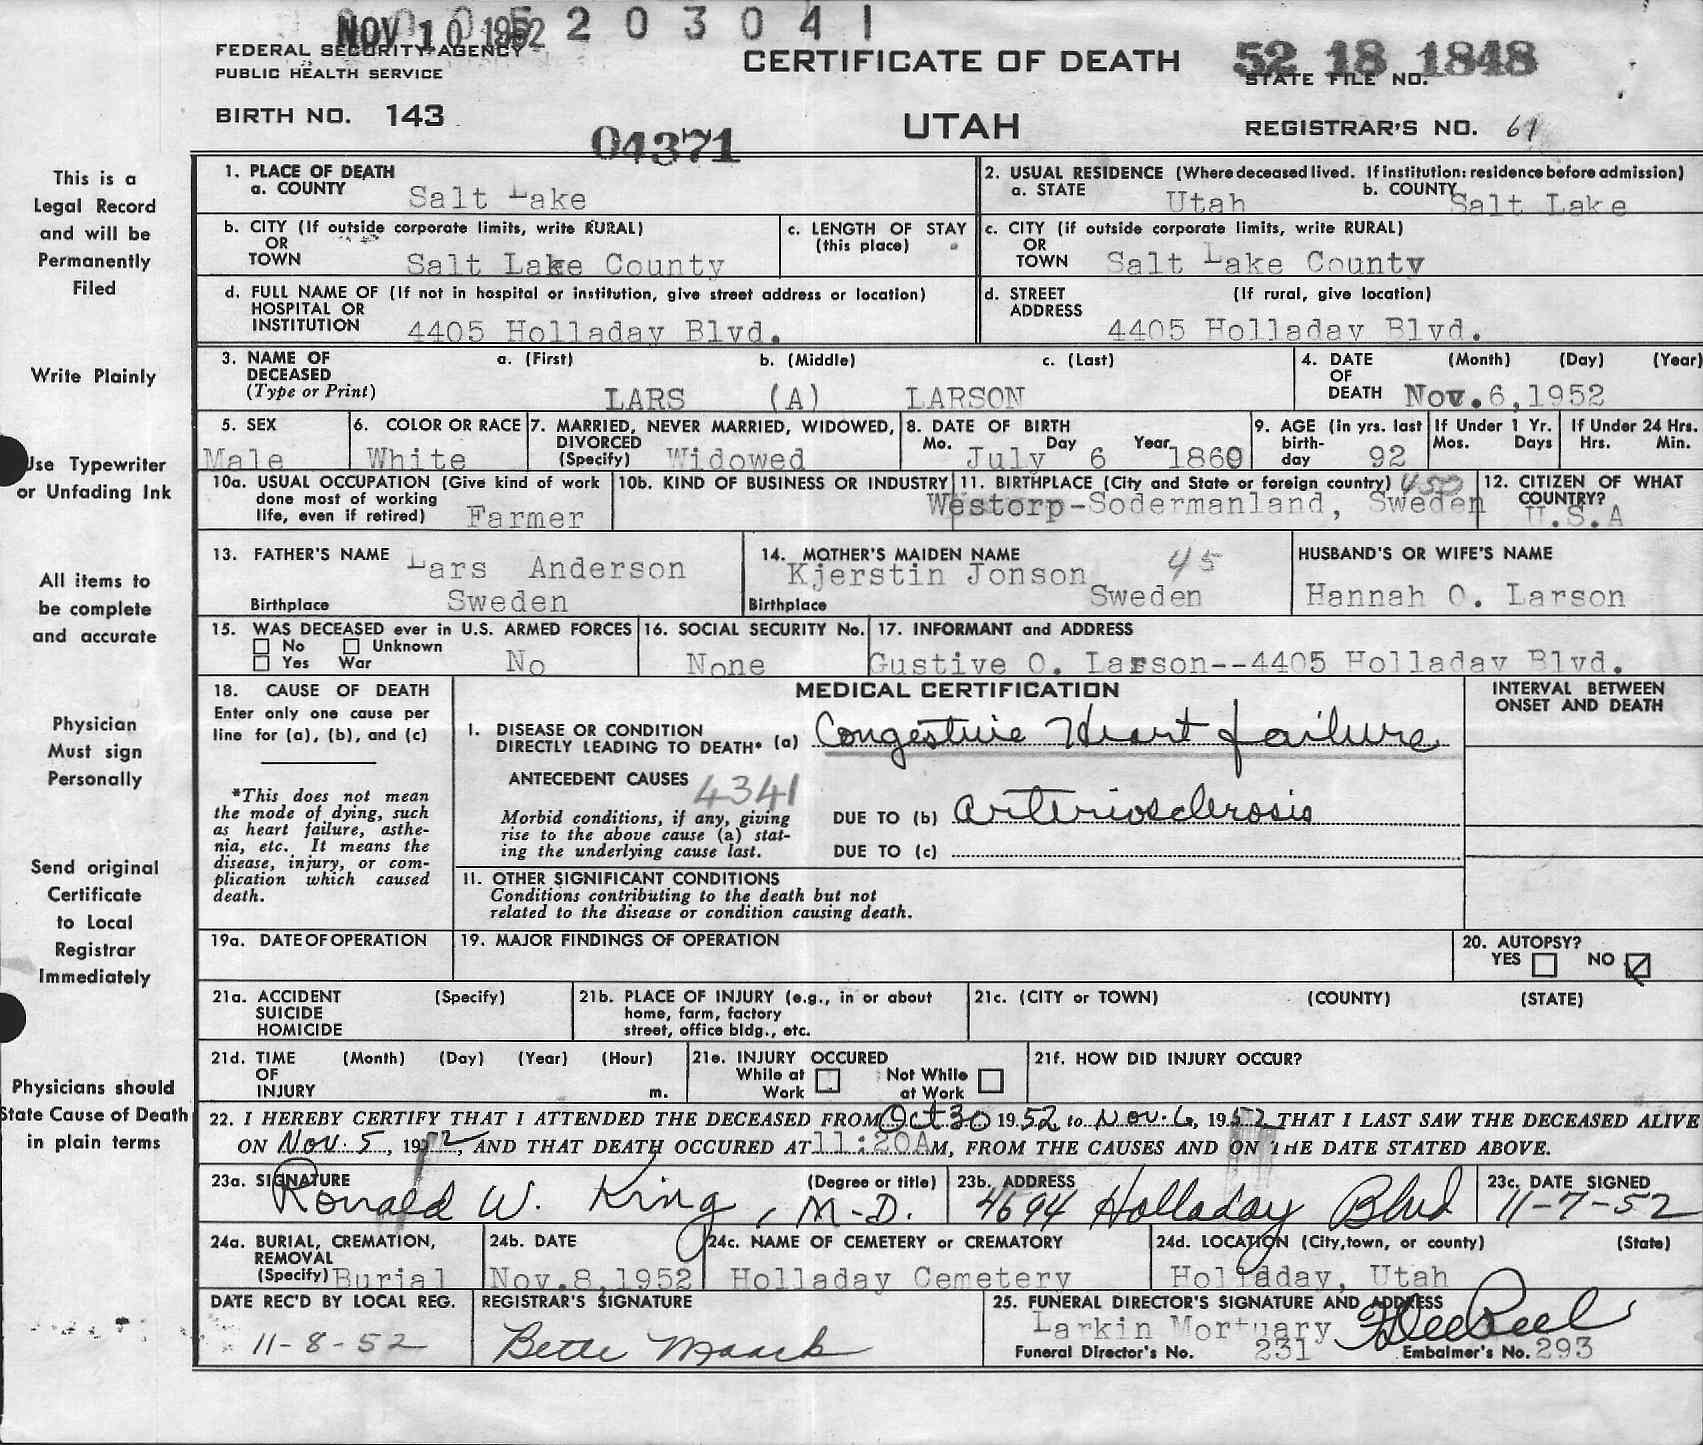 NOV 10 1952 203041
FEDERAL SECURITY AGENCY
PUBLIC HEALTH SERVICE
CERTIFICATE OF DEATH
52 18 1848
STATE FILE NO.
BIRTH NO. 143
04371
UTAH
REGISTRAR'S NO. 61
This is a
Legal Record
and will be
Permanently
Filed
Write Plainly
Use Typewriter
or Unfading Ink
All items to
be complete
and accurate
Physician
Must sign
Personally
Send original
Certificate
to Local
Registrar
Immediately
Physicians should
State Cause of Death
in plain terms
1. PLACE OF DEATH
a. COUNTY Salt Lake
2. USUAL RESIDENCE (Where deceased lived. If institution: residence before admission)
a. STATE Utah b. COUNTY Salt Lake
b. CITY (If outside corporate limits, write RURAL)
OR
TOWN Salt Lake County
c. LENGTH OF STAY
(this place)
c. CITY (if outside corporate limits, write RURAL)
OR
TOWN Salt Lake County
d. FULL NAME OF (If not in hospital or institution, give street address or location)
HOSPITAL OR
INSTITUTION 4405 Holladay Blvd.
d. STREET (If rural, give location)
ADDRESS
4405 Holladay Blvd.
3. NAME OF a. (First) b. (Middle) c. (Last)
DECEASED
(Type or Print) LARS (A) LARSON
4. DATE (Month) (Day) (Year)
OF
DEATH Nov.6,1952
5. SEX
Male
6. COLOR OR RACE
White
7. MARRIED, NEVER MARRIED, WIDOWED,
DIVORCED
(Specify) Widowed
8. DATE OF BIRTH
Mo. Day Year
July 6 1860
9. AGE (in yrs. last
birth-
day 92
If Under 1 Yr.
Mos. Days
If Under 24 Hrs.
Hrs. Min.
10a. USUAL OCCUPATION (Give kind of work
done most of working
life, even if retired) Farmer
10b. KIND OF BUSINESS OR INDUSTRY
11. BIRTHPLACE (City and State or foreign country)
Westorp-Sodermanland, Sweden
12. CITIZEN OF WHAT
COUNTRY?
U.S.A
13. FATHER'S NAME Lars Anderson
Birthplace Sweden
14. MOTHER'S MAIDEN NAME 45
Kjerstin Jonson
Birthplace Sweden
HUSBAND'S OR WIFE'S NAME
Hannah O. Larson
15. WAS DECEASED ever in U.S. ARMED FORCES
No Unknown
Yes War No
16. SOCIAL SECURITY No.
None
17. INFORMANT and ADDRESS
Gustive O. Larson--4405 Holladay Blvd.
18. CAUSE OF DEATH
Enter only one cause per
line for (a), (b), and (c)
*This does not mean
the mode of dying, such
as heart failure, asthe-
nia, etc. It means the
disease, injury, or com-
plication which caused
death.
MEDICAL CERTIFICATION
INTERVAL BETWEEN
ONSET AND DEATH
I. DISEASE OR CONDITION
DIRECTLY LEADING TO DEATH* (a) Congestive Heart failure
ANTECEDENT CAUSES 4341
Morbid conditions, if any, giving
rise to the above cause (a) stat-
ing the underlying cause last.
DUE TO (b) Arteriosclerosis
DUE TO (c)
11. OTHER SIGNIFICANT CONDITIONS
Conditions contributing to the death but not
related to the disease or condition causing death.
19a. DATE OF OPERATION
19. MAJOR FINDINGS OF OPERATION
20. AUTOPSY?
YES NO
21a. ACCIDENT (Specify)
SUICIDE
HOMICIDE
21b. PLACE OF INJURY (e.g., in or about
home, farm, factory
street, office bldg., etc.
21c. (CITY or TOWN) (COUNTY) (STATE)
21d. TIME (Month) (Day) (Year) (Hour)
OF
INJURY m.
21e. INJURY OCCURED
While at Work Not While at Work
21f. HOW DID INJURY OCCUR?
22. I HEREBY CERTIFY THAT I ATTENDED THE DECEASED FROM Oct 30 1952 to Nov. 6, 1952 THAT I LAST SAW THE DECEASED ALIVE
ON Nov. 5, 1952, AND THAT DEATH OCCURED AT 11:20AM, FROM THE CAUSES AND ON THE DATE STATED ABOVE.
23a. SIGNATURE (Degree or title)
Ronald W. King, M.D.
23b. ADDRESS
4694 Holladay Blvd
23c. DATE SIGNED
11-7-52
24a. BURIAL, CREMATION,
REMOVAL
(Specify) Burial
24b. DATE
Nov.8,1952
24c. NAME OF CEMETERY or CREMATORY
Holladay Cemetery
24d. LOCATION (City,town, or county) (State)
Holladay, Utah
DATE REC'D BY LOCAL REG.
11-8-52
REGISTRAR'S SIGNATURE
Bette Maack
25. FUNERAL DIRECTOR'S SIGNATURE AND ADDRESS
Larkin Mortuary
Funeral Director's No. 231 Embalmer's No. 293